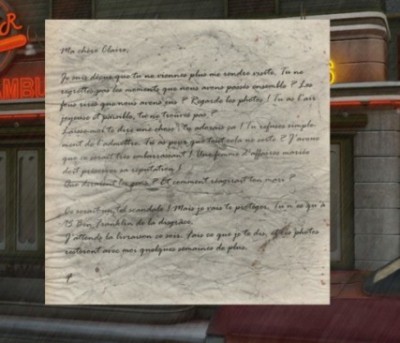 Ma chère Claire,
Je suis déçue que tu ne viennes plus me rendre visite. Tu ne
regrettes pas les moments que nous avons passés ensemble ? Les
fous rires que nous avons eus ? Regarde les photos ! Tu as l'air
joyeuse et paisible, tu ne trouves pas ?
Laisse moi te dire une chose : tu adorais ça ! Tu refuses simple-
ment de l'admettre. Tu as peur que tout cela ne sorte ? J'avoue
que ce serait très embarrassant ! Une femme d'affaires mariée
doit préserver sa réputation !
Que diraient tes pairs ? Et comment réagirait ton mari ?
Ce serait un tel scandale ! Mais je vais te protéger. Tu n'es qu'à
Ben Franklin de la disgrâce.
J'attends la livraison ce soir. Fais ce que je te dis, et les photos
resteront avec moi quelques semaines de plus.